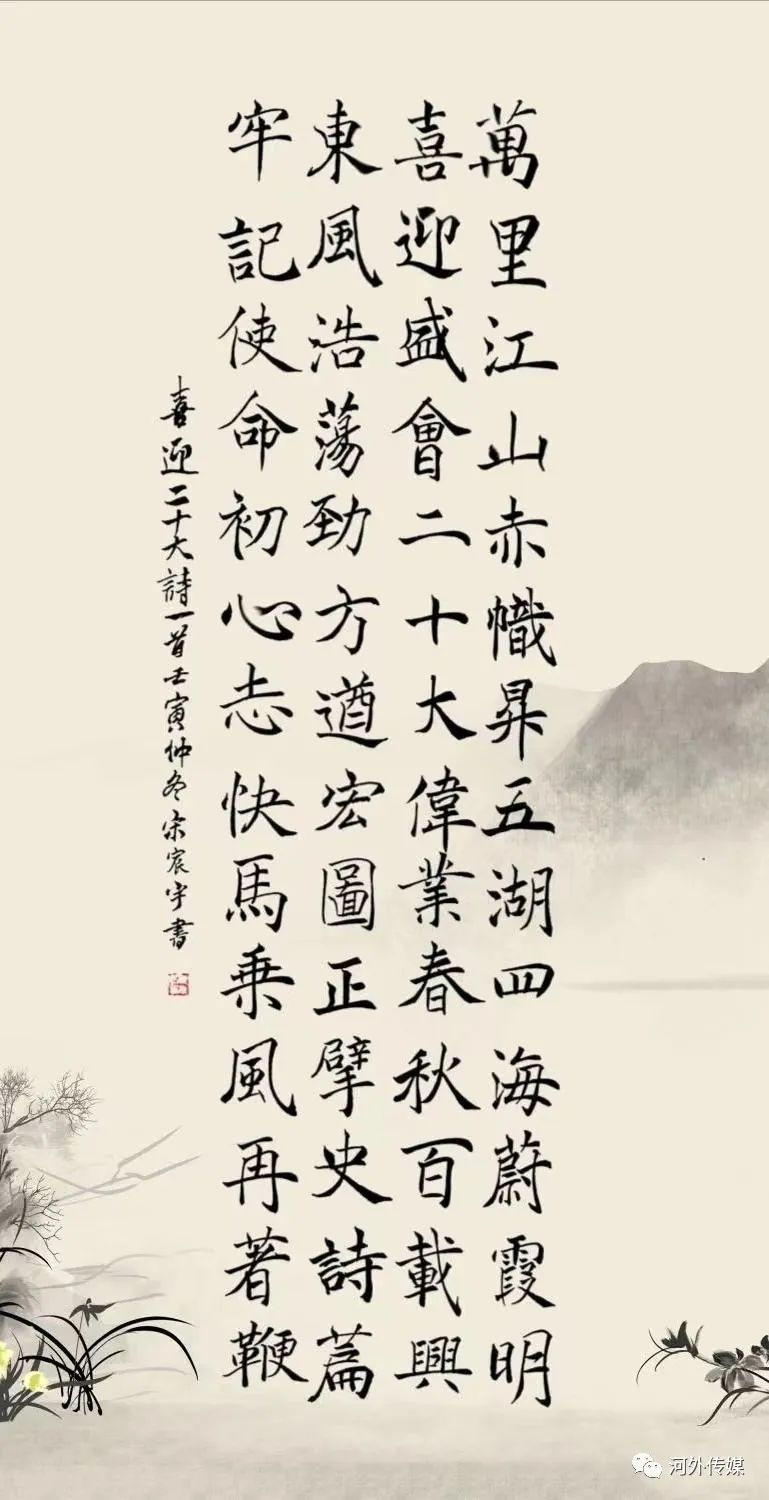 萬里江山赤幟昇五湖四海蔚霞明
喜迎盛會二十大偉業春秋百載興
東風浩蕩勁方遒宏圖正擘史詩篇
牢記使命初心志快馬乘風再著鞭
喜迎二十大詩一首壬寅仲冬宋宸宇書
河外传媒